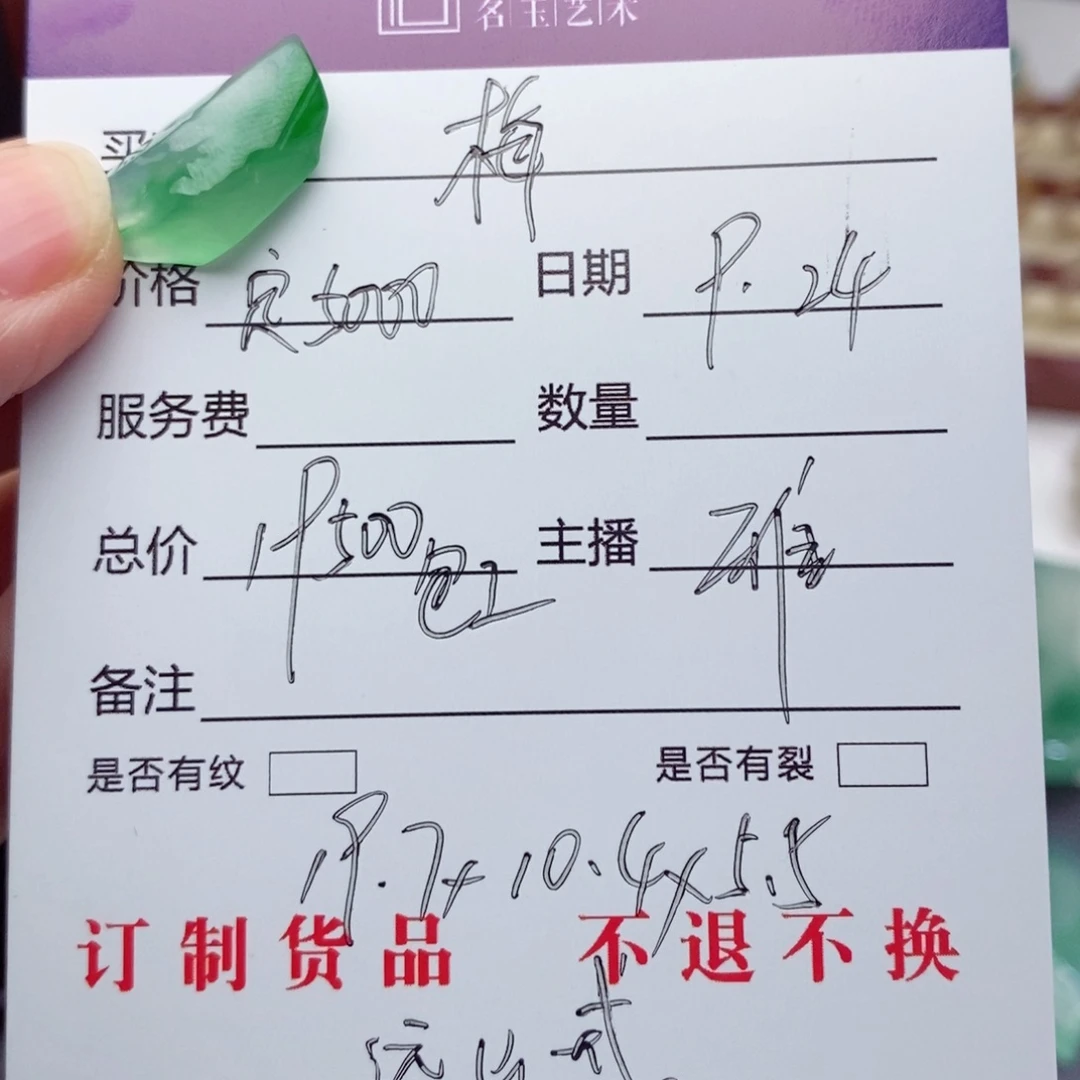 名玉艺术
买 梅
价格 定5000 日期 9.24
服务费 数量
总价 19500包工 主播
备注
是否有纹 是否有裂
19.7x10.4x5.5
订制货品 不退不换